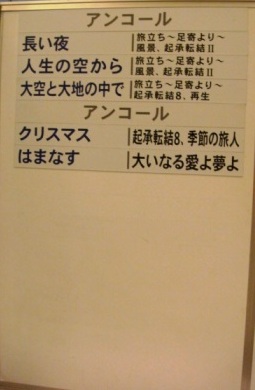 アンコール
長い夜 旅立ち～足寄より～
風景、起承転結Ⅱ
人生の空から 旅立ち～足寄より～
風景、起承転結Ⅱ
大空と大地の中で 旅立ち～足寄より～
起承転結8、再生
アンコール
クリスマス 起承転結8、季節の旅人
はまなす 大いなる愛よ夢よ